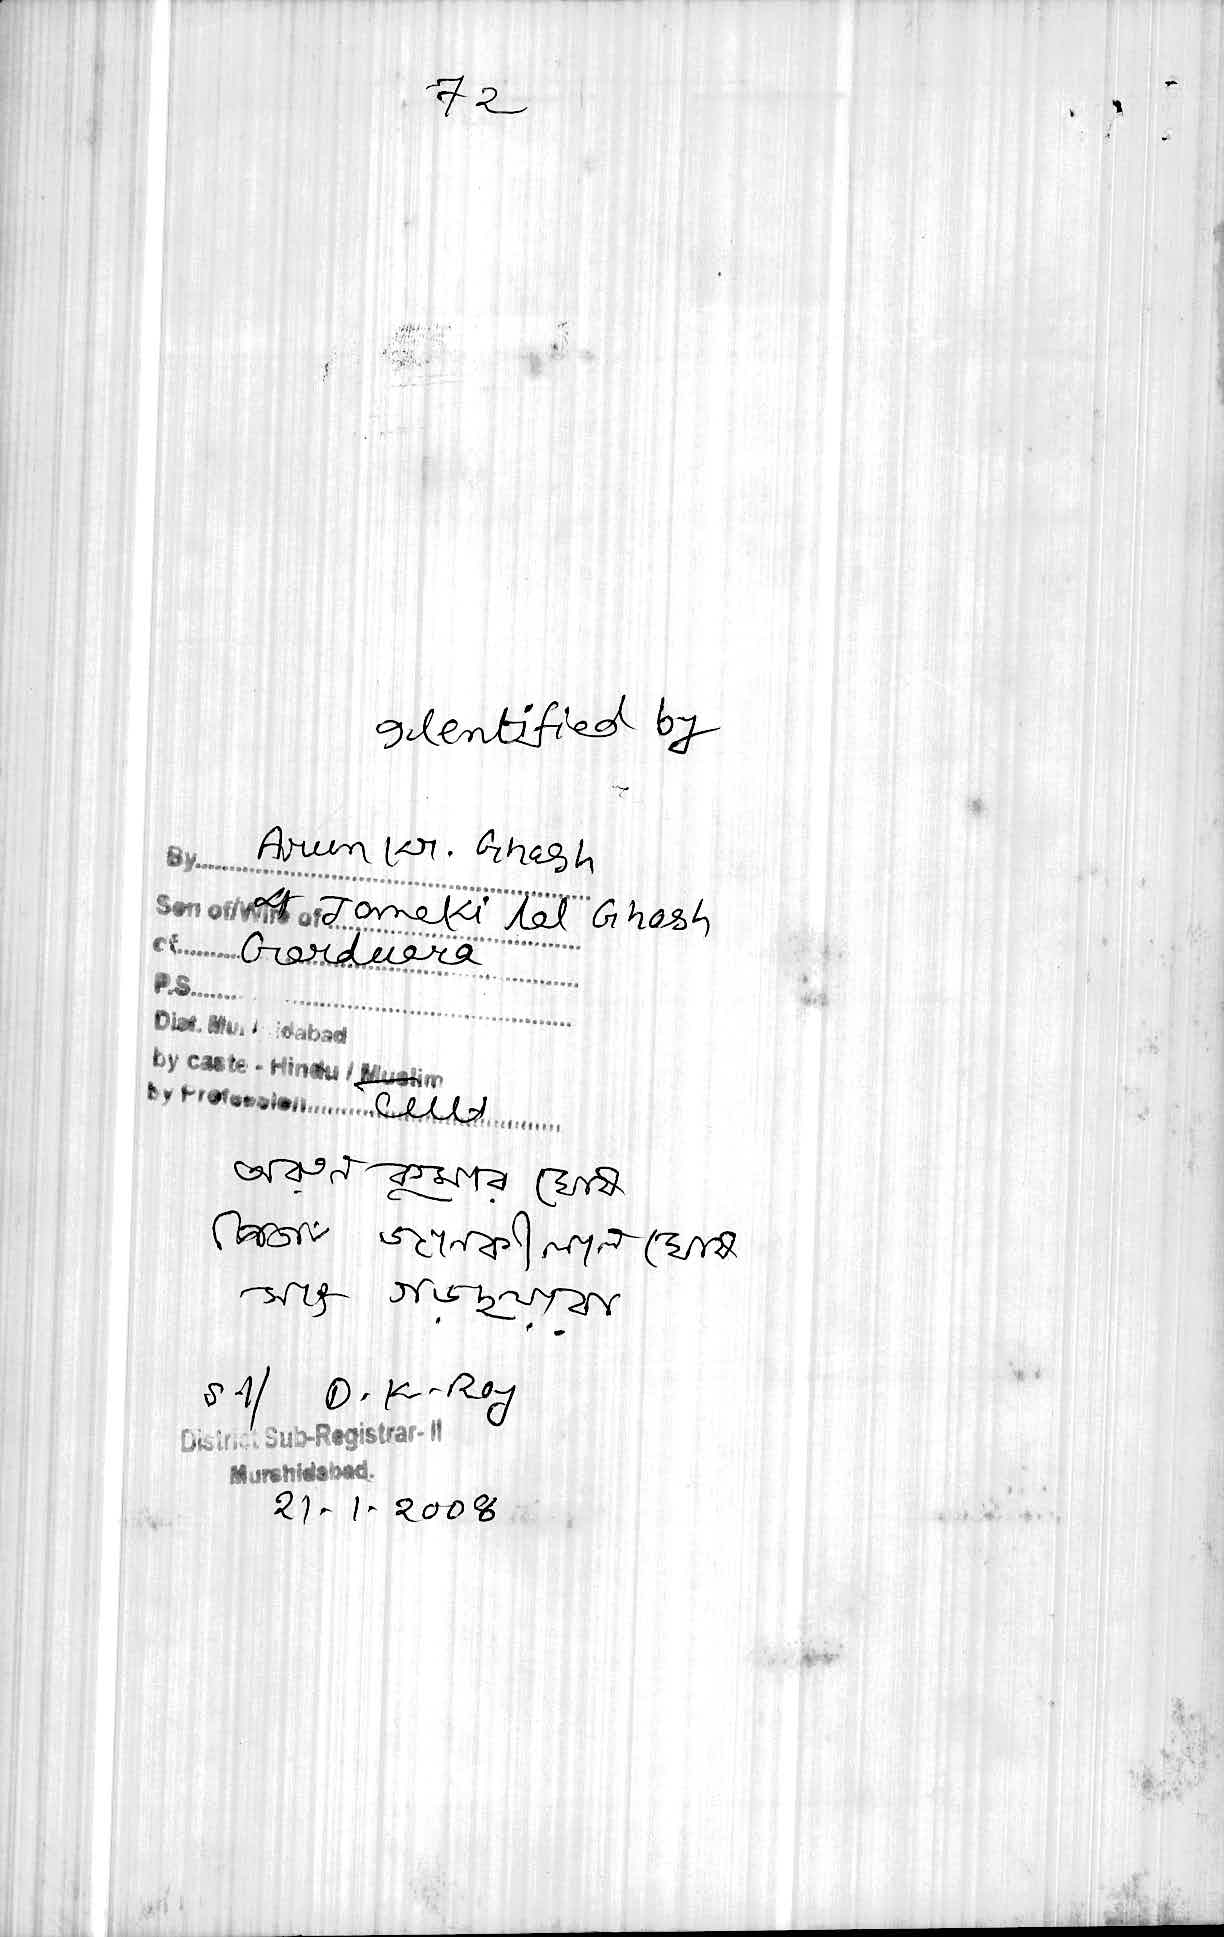 72
Identified by
By........ Arun Kr. Ghosh
Son of/Wife of Lt Janaki Lal Ghosh
of........ Garduara
P.S........
Dist. Murshidabad
by caste - Hindu / Muslim
by Profession........
অরুন কুমার ঘোষ
পিতাং জানকীলাল ঘোষ
সাং গড়দুয়ারা
Sd/ D. K. Roy
District Sub-Registrar- II
Murshidabad.
21-1-2008